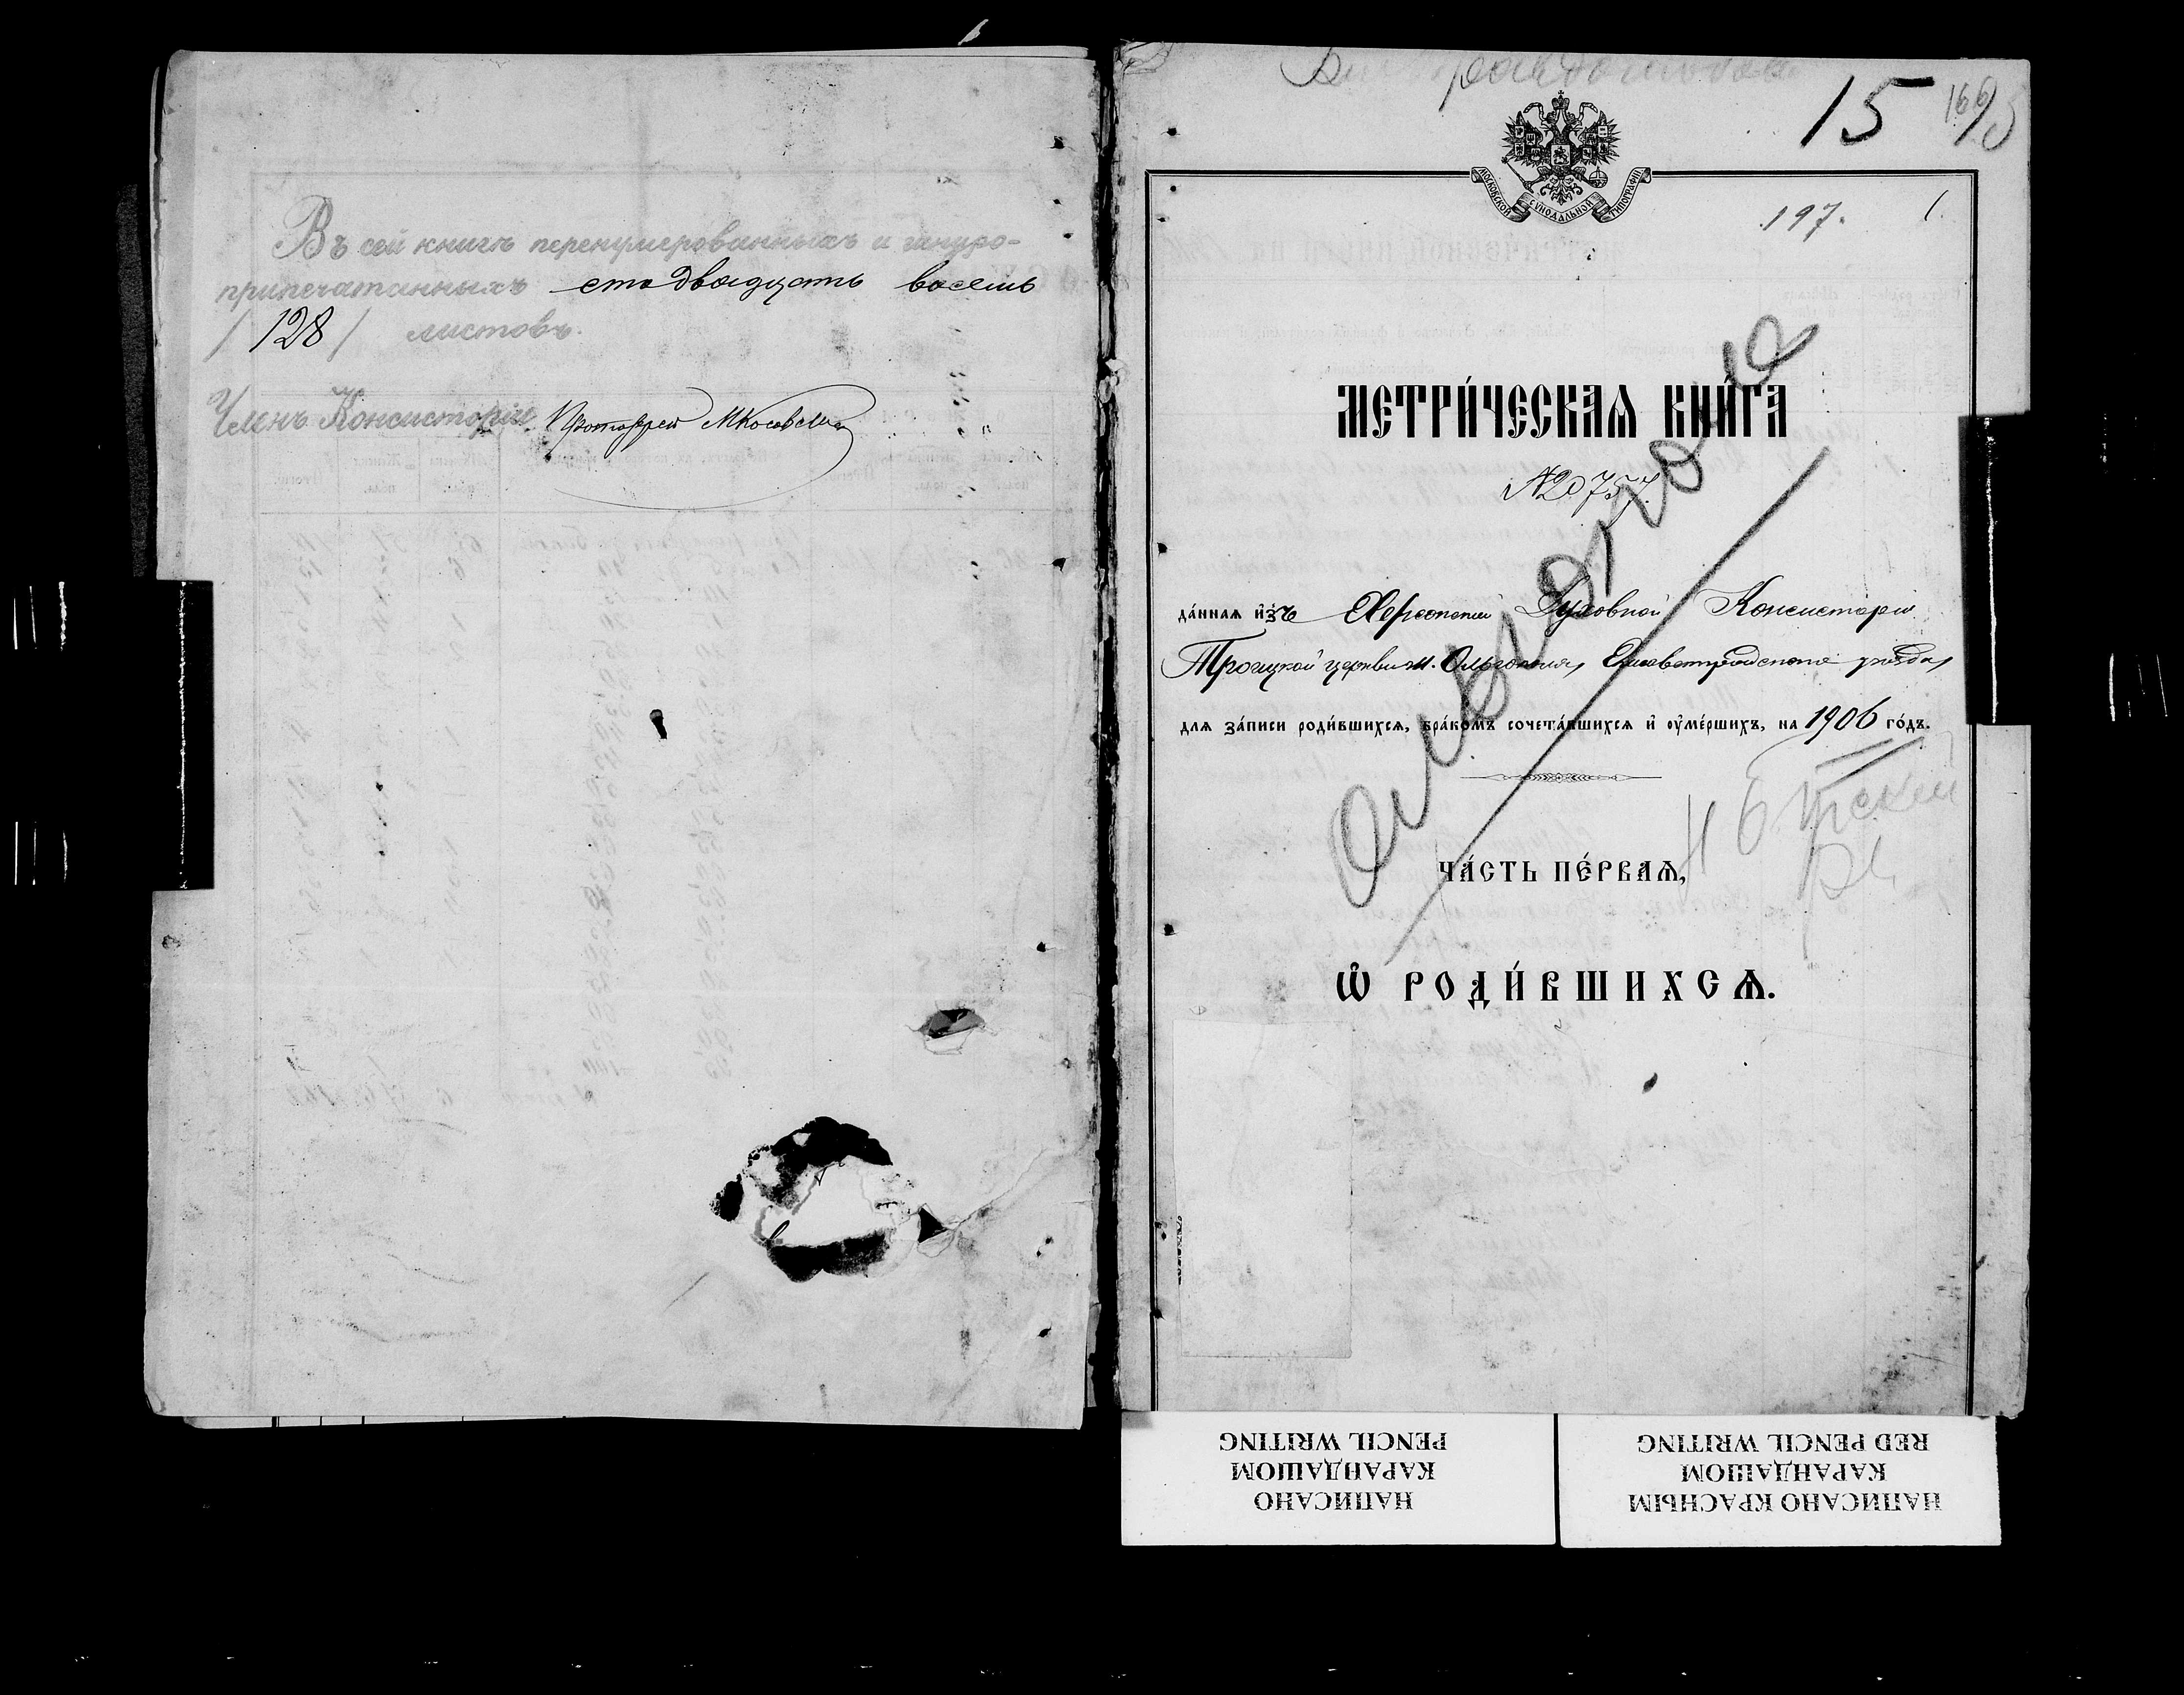 Въ сей книгѣ перенумерованныхъ и шнуро-
припечатанныхъ сто двадцать восемь
/ 128 / листовъ.
Членъ Консисторіи Протоіерей
15
166
95
МОСКОВСКОЙ СѴНОДАЛЬНОЙ ТИПОГРАФІИ
197.
1.
МЕТРИ́ЧЕСКАѦ КНИ́ГА
№ 20757
да́ннаѧ и҆зъ Херсонской Духовной Консисторіи
Троицкой церкви м. Ольгополя, Елисаветградскаго уѣзда,
длѧ за́писи роди́вшихсѧ, бра́комъ сочета́вшихсѧ и҆ оу҆ме́ршихъ, на 1906 го́дъ.
ЧА́СТЬ ПЕ́РВАѦ,
Ѡ҆ РОДИ́ВШИХСѦ.
НАПИСАНО
КАРАНДАШОМ
PENCIL WRITING
НАПИСАНО КРАСНЫМ
КАРАНДАШОМ
RED PENCIL WRITING